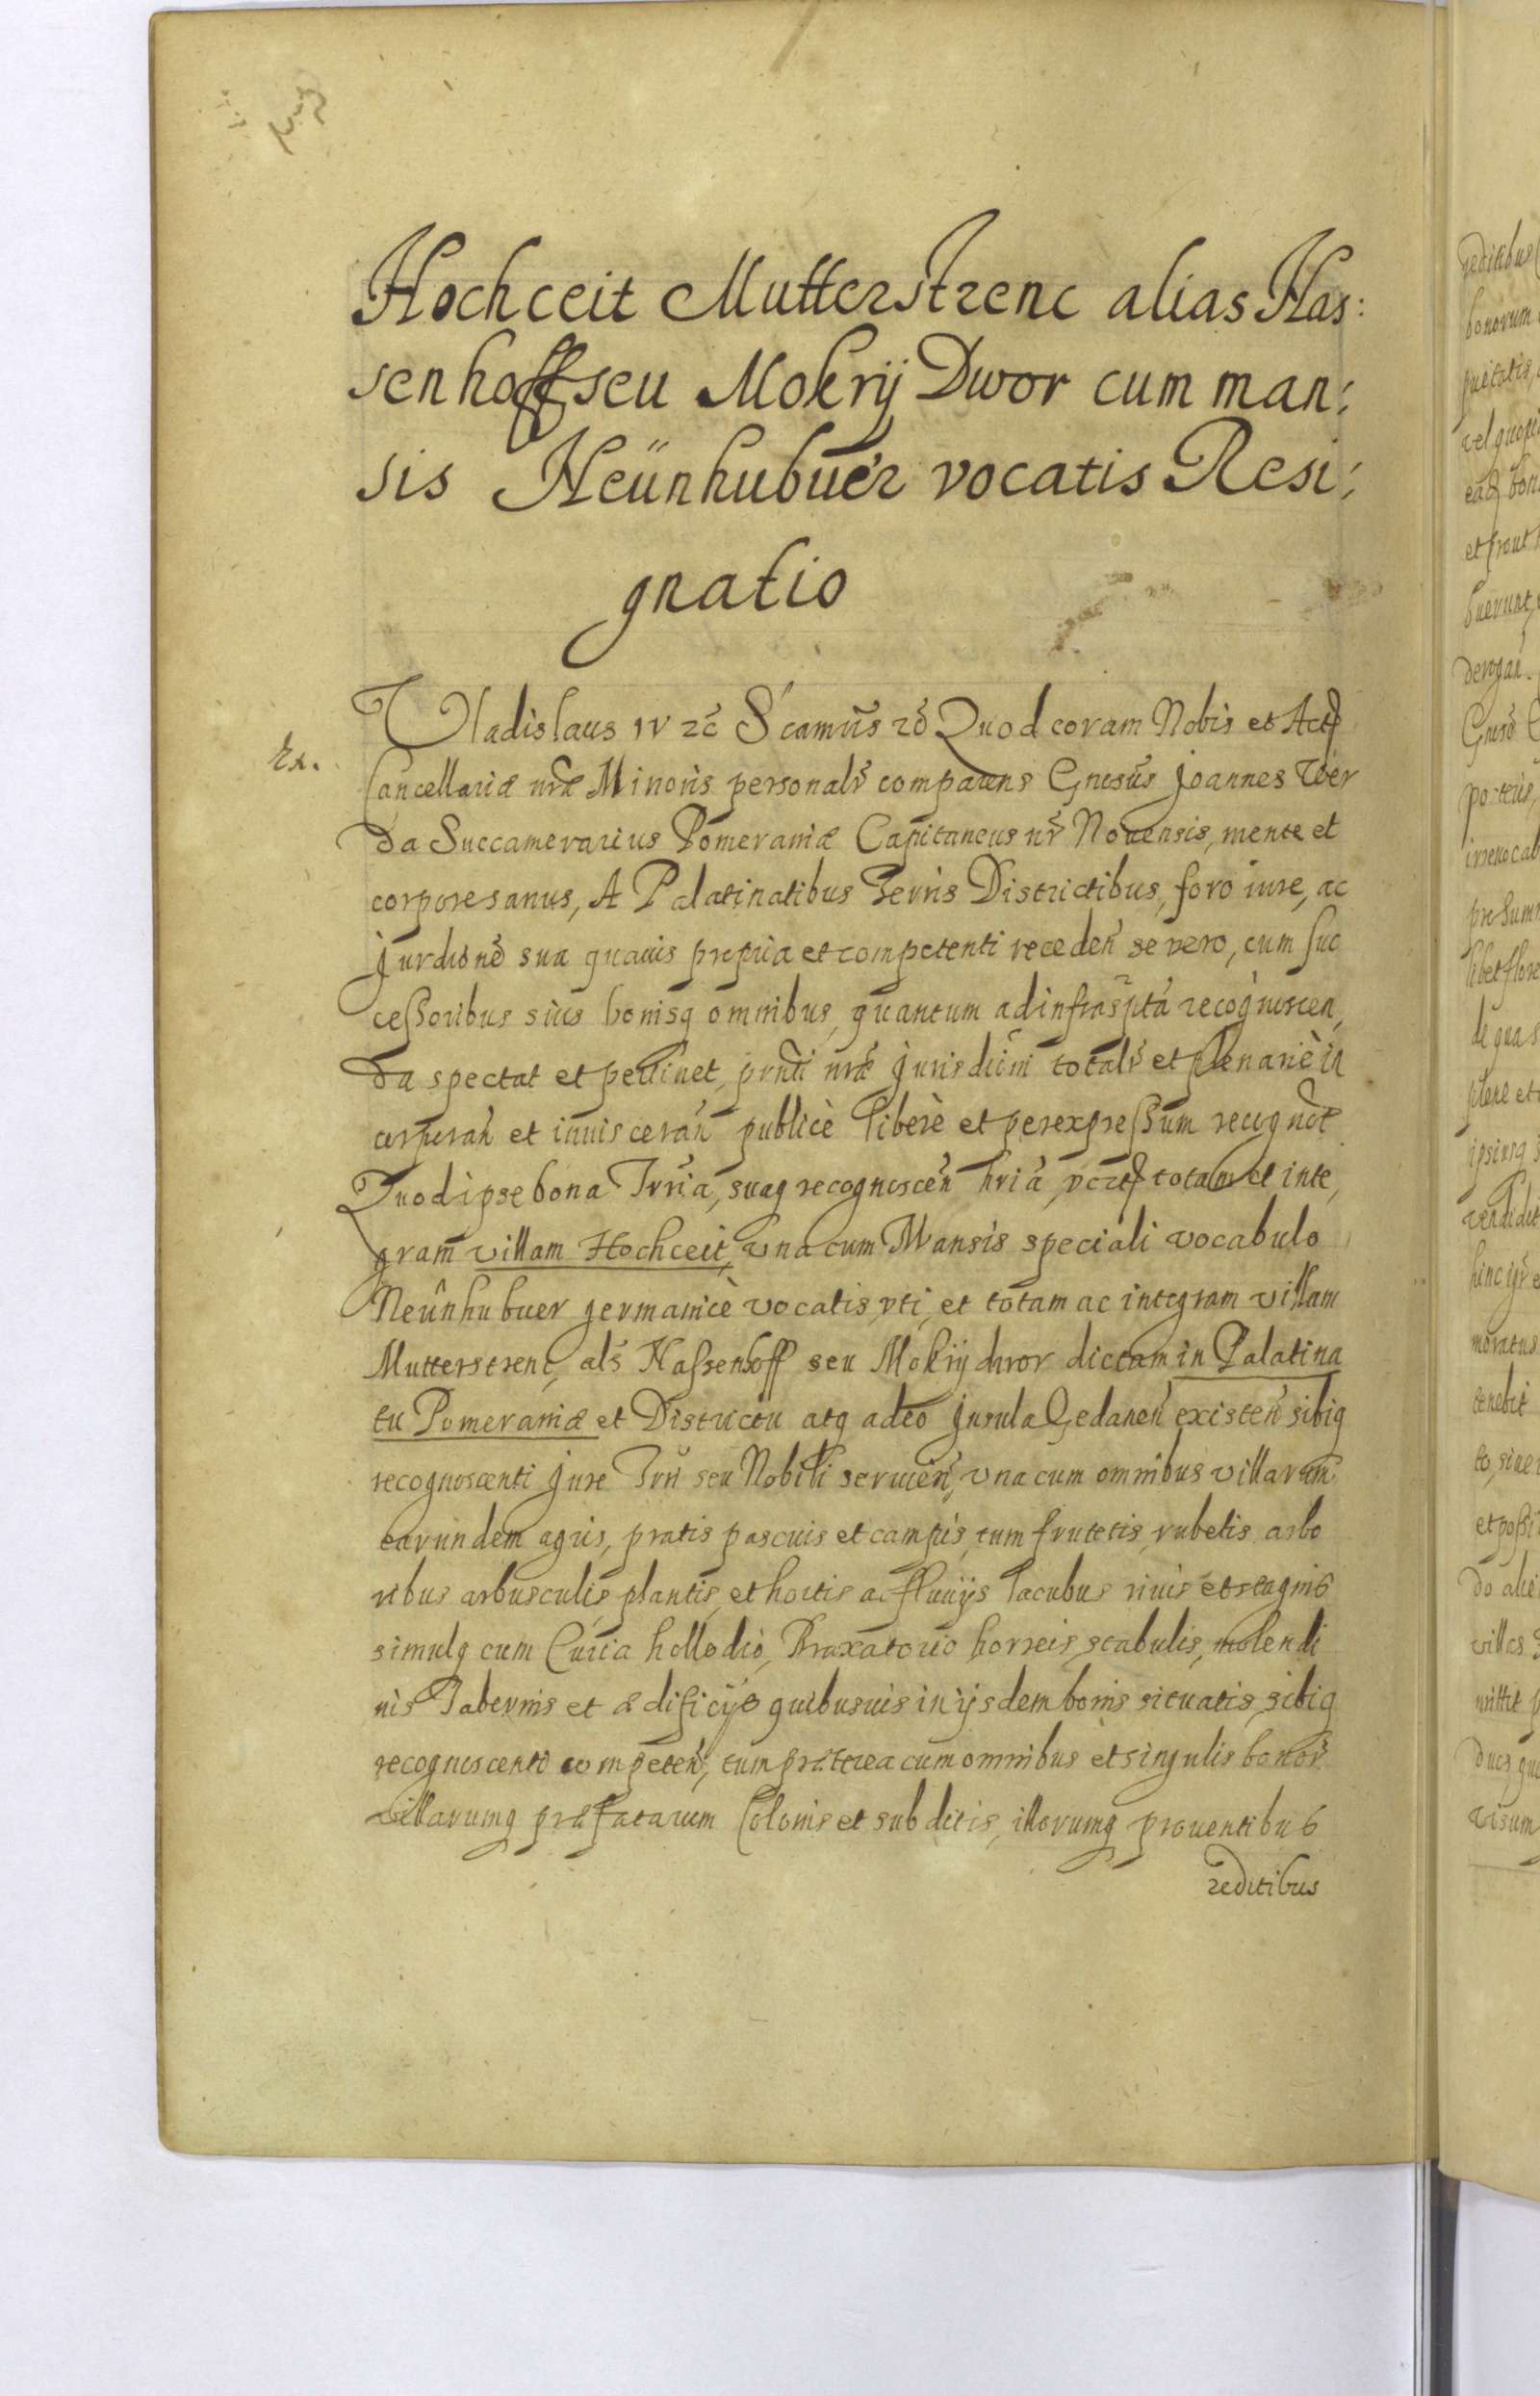 Hochceit Mutterstrenc alias Has:
senhoff seu Mokrÿ Dwor cum man:
sis Neünhubuer vocatis Resi:
gnatio
Ex.
Vladislaus IV zc̃ S'camũs zc̃ Quod coram Nobis et Actis
Cancellariæ nr̃æ Minoris personalr̃ comparens Gnosũs Joannes Wer
da Succamerarius Pomeraniæ Capitaneus nr̃ Novensis, mente et
corpore sanus, A Palatinatibus Terris Districtibus, foro iure, ac
Jurdionẽ sua quauis propria et competenti receden̄ se vero, cum suc
cessoribus suis bonisq omnibus, quantum ad infrasp̃ta recognoscen,
da spectat et pertinet, prñti nr̃æ Jurisdicñi totalr̃ et plenariè in
corporan̄ et inuisceran̄ publicè liberè et per expressum recognoṽt
Quod ipse bona Trr̃ia, suaq recognoscen̄ hria, totam et inte,
gram villam Hochceit, vna cum Mansis speciali vocabulo
Neûnhubuer germanicè vocatis, vti, et totam ac integram villam
Mutterstrenc, als̃ Nassenhoff seu Mokrÿ dwor dictam in Palatina
tu Pomeraniæ et Districtu atq adeo Jnsula Gedanen̄ existen̄ sibiq
recognoscenti Jure Trr̃i seu Nobili seruien̄, vna cum omnibus villarum
earundem agris, pratis pascuis et campis, tum frutetis, rubetis arbo
ribus arbusculis plantis, et hortis ac fluuÿs lacubus riuis et stagnis
simulq cum Curia hollodio, Braxatorio horreis, stabulis, molendi
nis Tabernis et ædificÿs quibusuis in ÿsdem bonis situatis, sibiq
recognoscenti competen̄, tum præterea cum omnibus et singulis bonor̃
villarumq præfatarum Colonis et subditis, illorumq prouentibus
reditibus